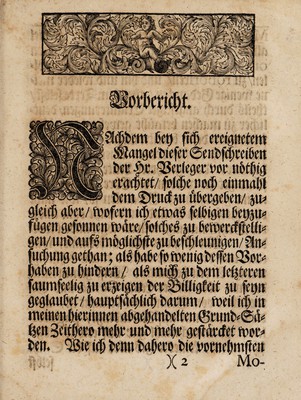 Vorbericht.
NAchdem bey sich ereignetem
Mangel dieser Sendschreiben
der Hr. Verleger vor nöthig
erachtet / solche noch einmahl
dem Druck zu übergeben / zu-
gleich aber / wofern ich etwas selbigen beyzu-
fügen gesonnen wäre / solches zu bewerckstelli-
gen / und aufs möglichste zu beschleunigen / An-
suchung gethan; als habe so wenig dessen Vor-
haben zu hindern / als mich zu dem letzteren
saumseelig zu erzeigen der Billigkeit zu seyn
geglaubet / hauptsächlich darum / weil ich in
meinen hierinnen abgehandelten Grund-Sä-
tzen Zeithero mehr und mehr gestärcket wor-
den. Wie ich denn dahero die vornehmsten
)( 2 Mo-